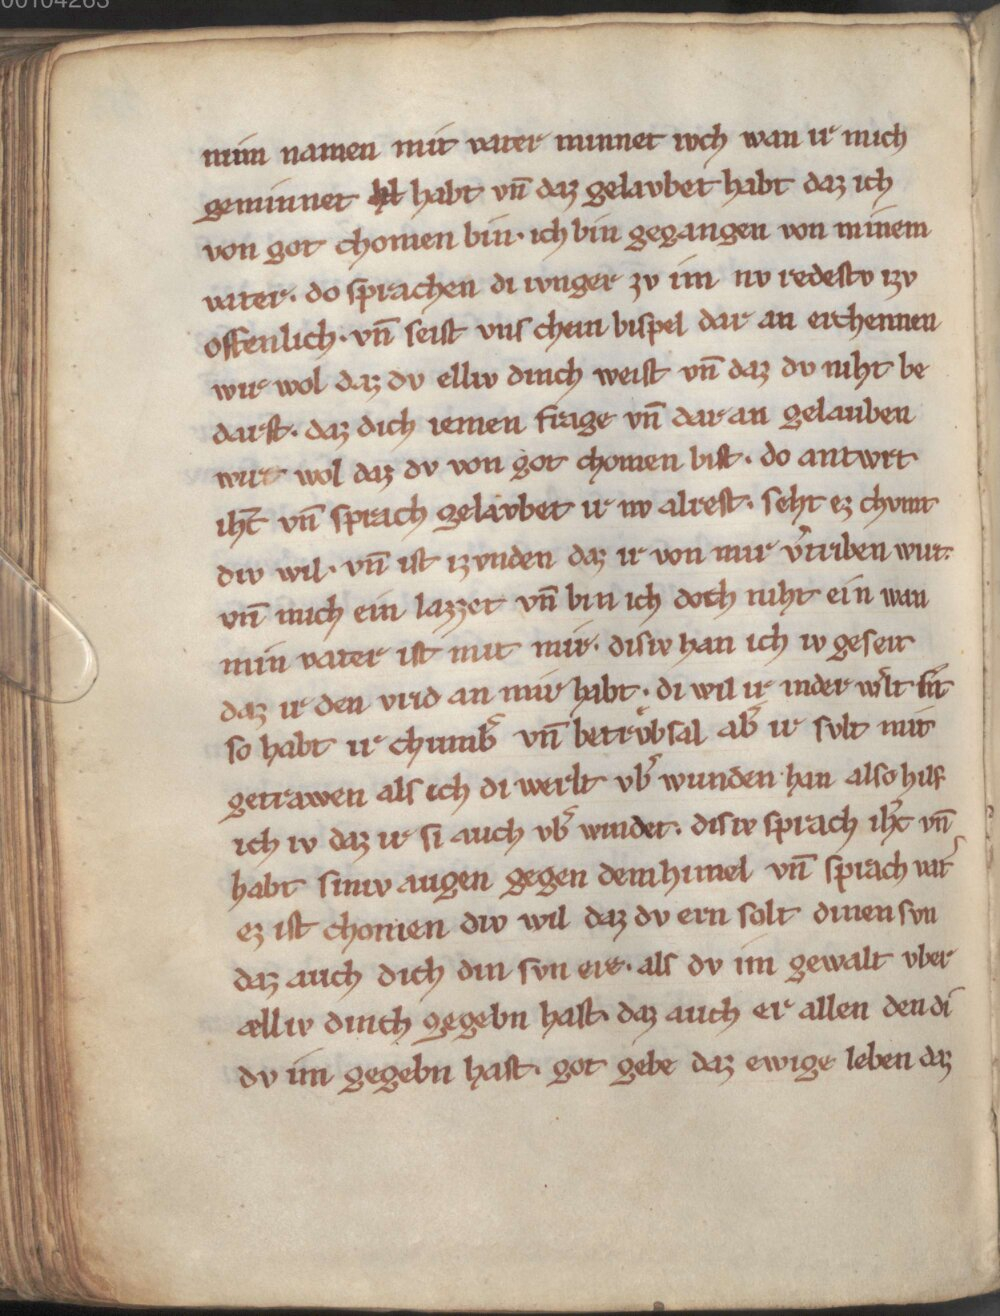 00104263
min namen mit vater minnet ivch wan ir mich
geminnet habt vn̄ daz gelavbet habt daz ich
von got chomen bin· ich bin gegangen von minem
vater· do sprachen di ivnger zv im nv redestv izv
offenlich· vn̄ seist vns chein bispel dar an erchennen
wir wol daz dv elliv dinch weist vn̄ daz dv niht be
darft· daz dich iemen frage vn̄ dar an gelauben
wir wol daz dv von got chomen bist· do antwrt
ihc̄ vn̄ sprach gelavbet ir nv alrest· seht ez chvmt
div wil· vn̄ ist izvnden daz ir von mir v̾triben wirt
vn̄ mich ein lazzet vn̄ bin ich doch niht ein wan
min vater ist mit mir· disiv han ich iv geseit
daz ir den vrid an mir habt· di wil ir in der w̾lt sit
so habt ir chumb̾ vn̄ betrvbsal ab̾ ir svlt mir
getrawen als ich di werlt vb̾ wunden han also hilf
ich iv daz ir si auch vb̾ windet· disiv sprach ihc̄ vn̄
habt siniv augen gegen dem himel vn̄ sprach vat̾
ez ist chomen div wil daz dv ern solt dinen svn
daz auch dich din svn ere· als dv im gewalt vber
ælliv dinch gegebn hast· daz auch er allen den di
dv im gegebn hast· got gebe daz ewige leben daz